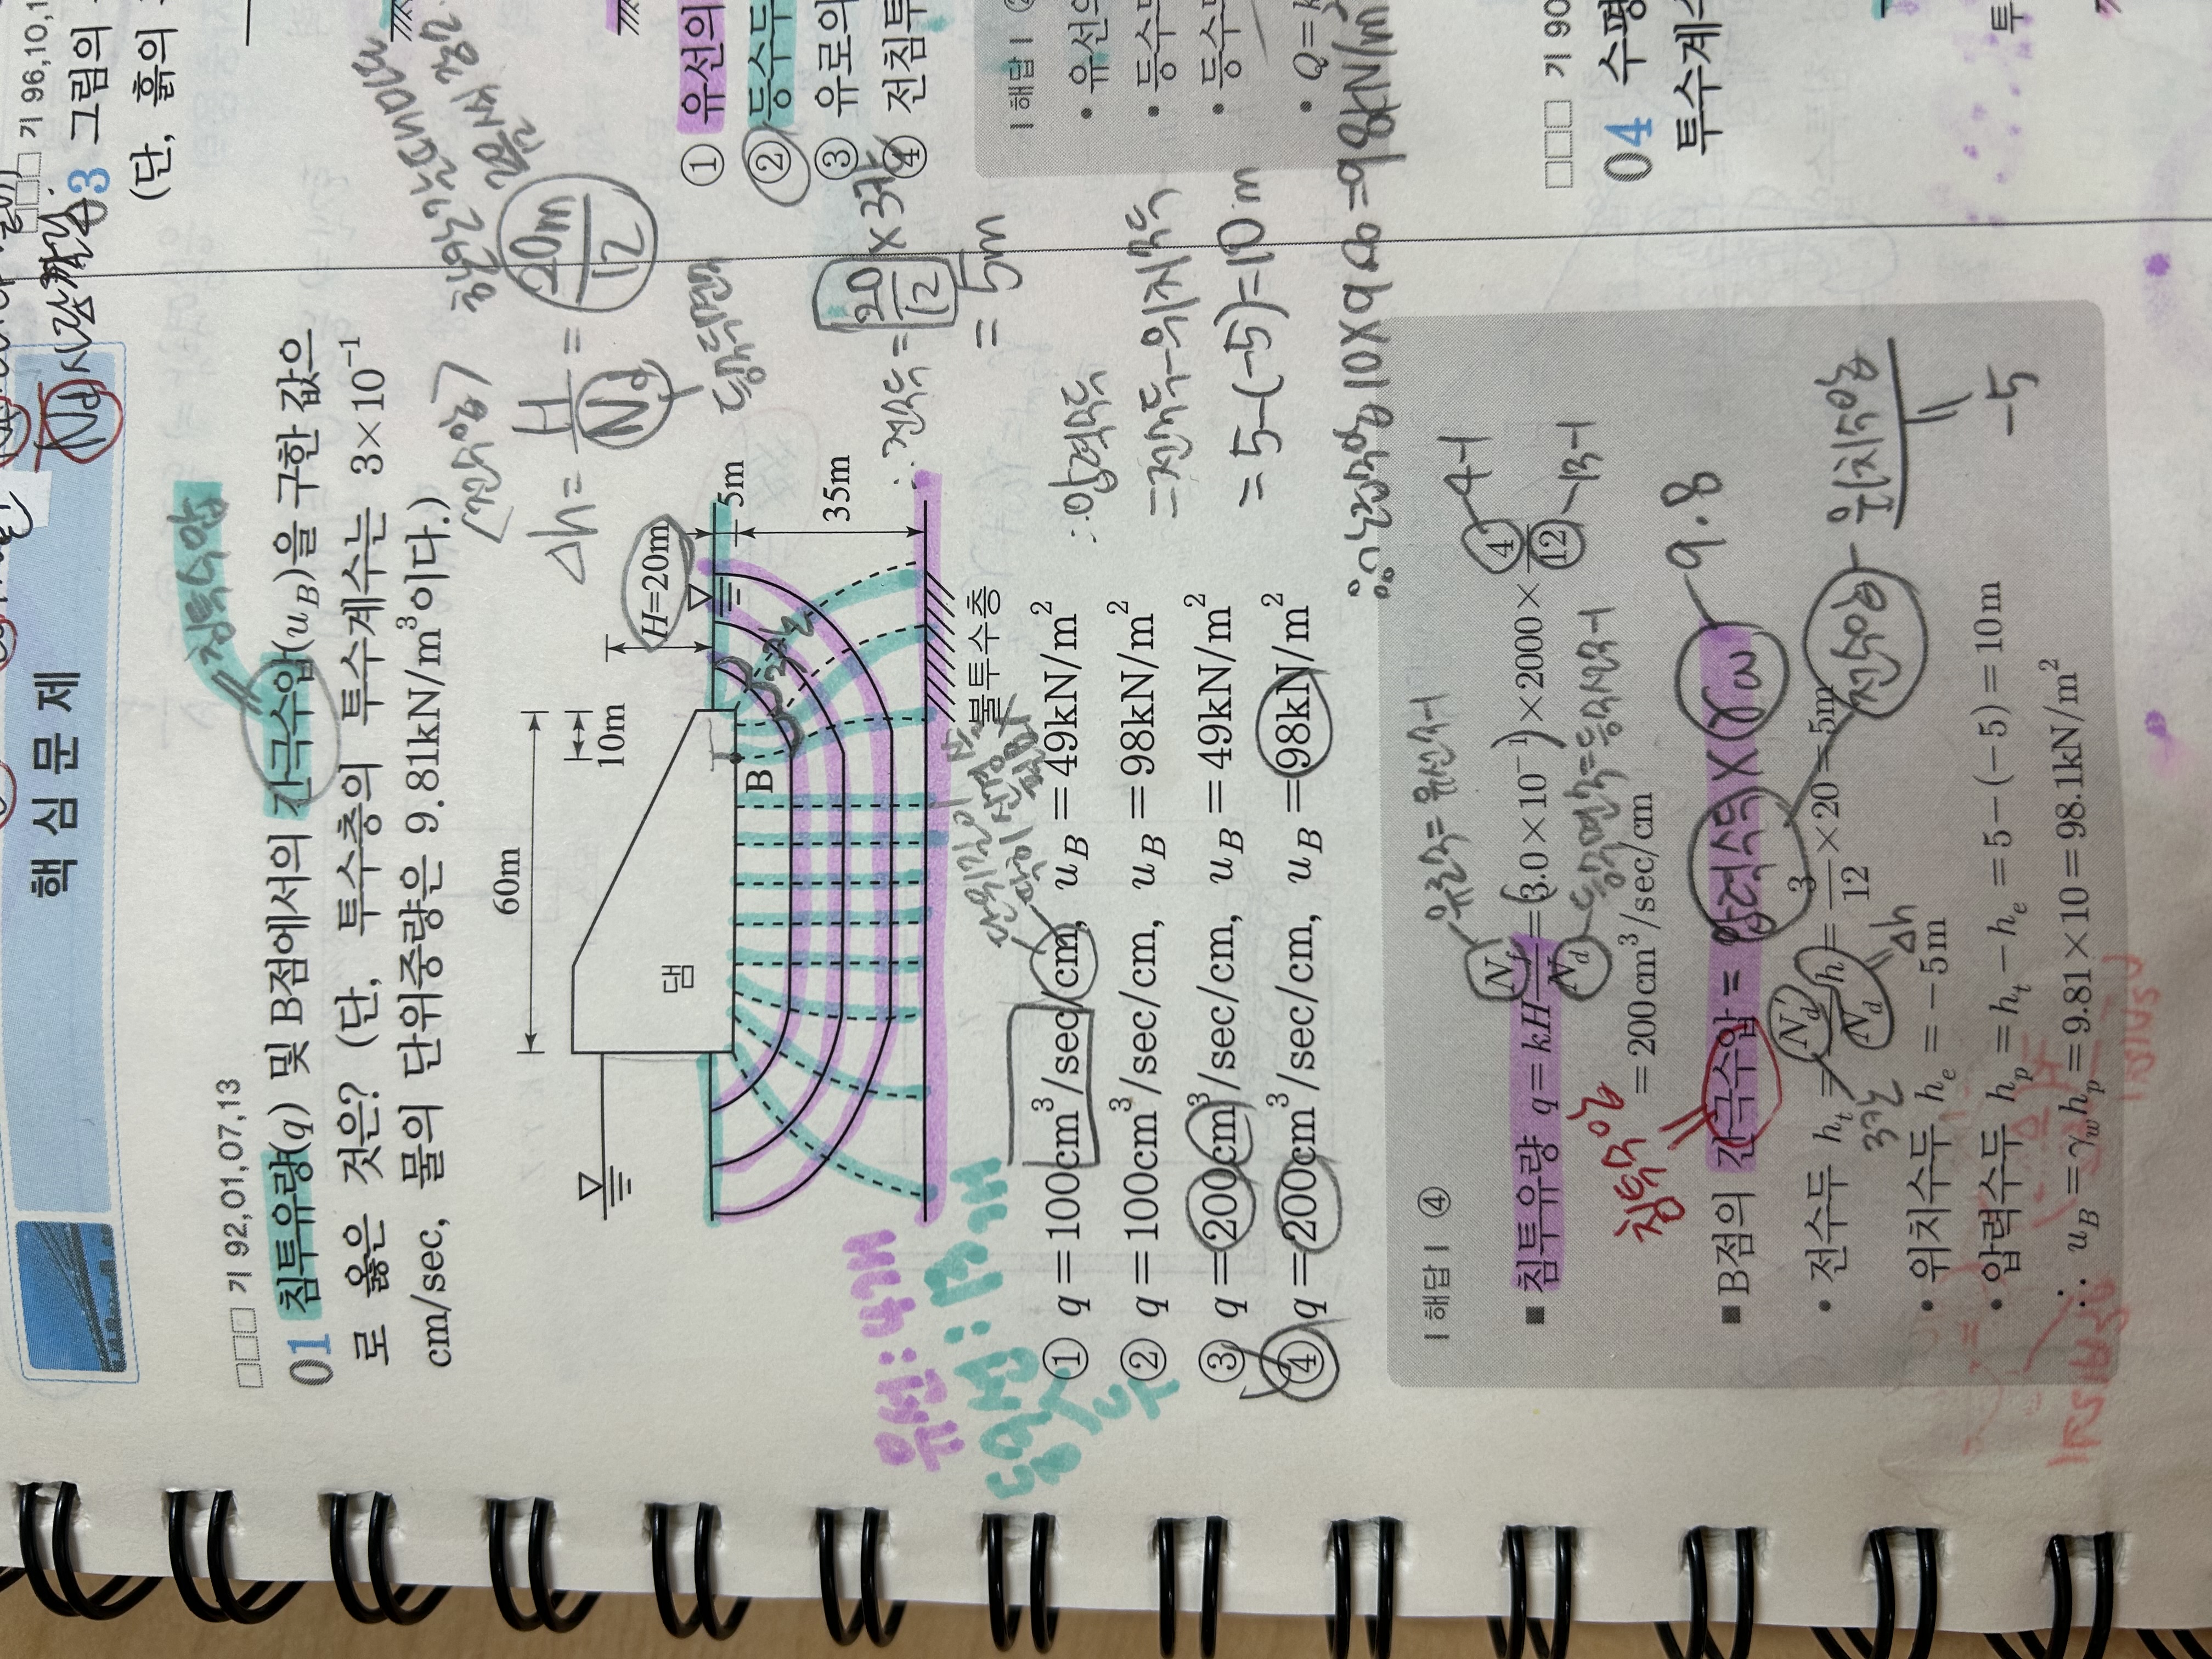 핵 심 문 제
Nd
□□□ 기 92,01,07,13
침투수압
01 침투유량(q) 및 B점에서의 간극수압(u_B)을 구한 값으
로 옳은 것은? (단, 투수층의 투수계수는 3×10⁻¹
cm/sec, 물의 단위중량은 9.81kN/m³이다.)
(전수압)
Δh = H/Nd = 20m/12
등수두면
60m
10m
H=20m
5m
35m
댐
B
불투수층
유선: 4개
등수두선: 13개
∴ 전수두 = 20/12 × 3칸
= 5m
∴ 압력수두
= 전수두 - 위치수두
= 5-(-5)=10m
10×9.8=98kN/m²
① q=100cm³/sec/cm, u_B=49kN/m²
② q=100cm³/sec/cm, u_B=98kN/m²
③ q=200cm³/sec/cm, u_B=49kN/m²
④ q=200cm³/sec/cm, u_B=98kN/m²
| 해답 | ④
유로수=유선수-1
4-1
■ 침투유량 q=kH N_f/N_d=(3.0×10⁻¹)×2000×4/12
13-1
=200cm³/sec/cm
침투수압
9.8
■ B점의 간극수압 = 압력수두×γω
전수압 - 위치수압
-5
• 전수두 h_t=N_d'/N_d h=3/12×20=5m
3칸
Δh
• 위치수두 h_e=-5m
• 압력수두 h_p=h_t-h_e=5-(-5)=10m
∴ u_B=γ_w h_p=9.81×10=98.1kN/m²
□□□ 기 96,10,1
03 그림의
(단, 흙의
① 유선의
② 등수두
③ 유로의
④ 전침투
| 해답 | ②
• 유선의
• 등수두
• 등수두
• Q=k
□□□ 기 90
04 수평
투수계수
투